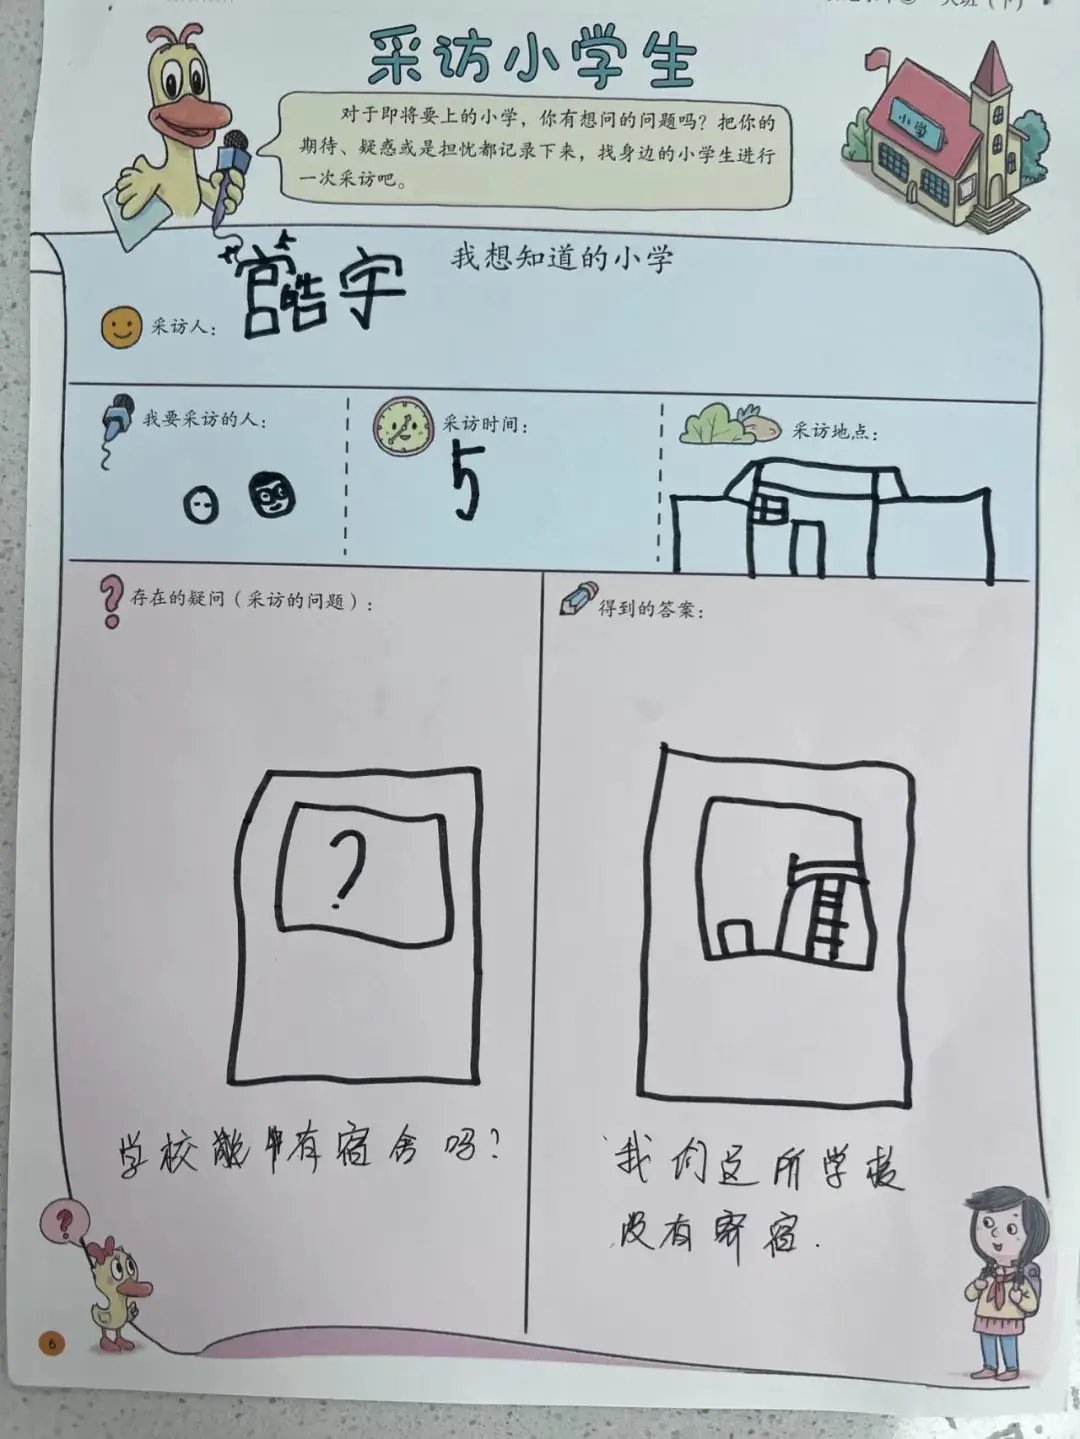 大班（下）
采访小学生
对于即将要上的小学，你有想问的问题吗？把你的
期待、疑惑或是担忧都记录下来，找身边的小学生进行
一次采访吧。
小学
我想知道的小学
采访人：宫皓宇
我要采访的人：
采访时间：
5
采访地点：
？
存在的疑问（采访的问题）：
得到的答案：
?
学校里有宿舍吗？
我们这所学校
没有寄宿.
?
6